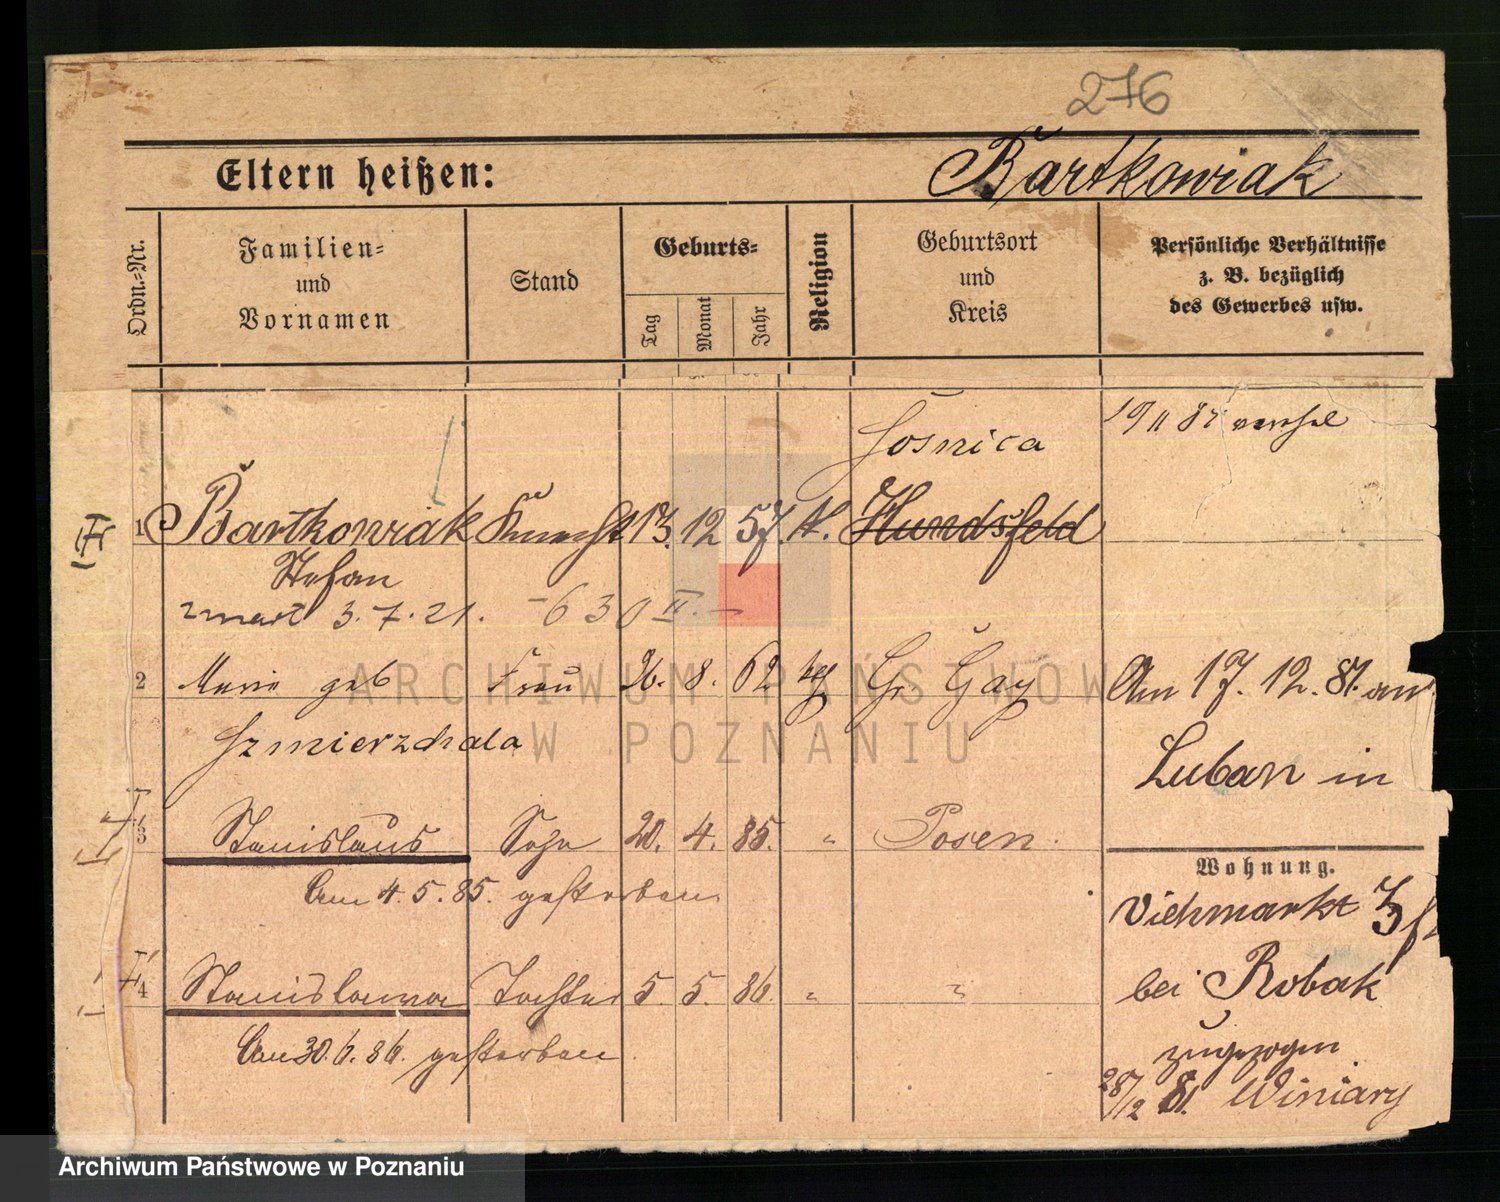 276
Eltern heißen:
Bartkowiak
Ordn.-Nr.
Familien-
und
Vornamen
Stand
Geburts-
Tag
Monat
Jahr
Religion
Geburtsort
und
Kreis
Persönliche Verhältnisse
z. B. bezüglich
des Gewerbes usw.
Sosnica
19 11 87
1 Bartkowiak Knecht 13. 12 57. k. Hundsfeld
Stefan
zmarł 3.7.21. - 630 II. -
2 Marie geb Frau 26. 8. 62 Gr. Gay Am 17. 12. 81. aus
Szmierzchala
Luban in
3 Stanislaus Sohn 20. 4. 85. " Posen.
Am 4. 5. 85. gestorben
Wohnung.
Viehmarkt 3
4 Stanislawa Tochter 5. 5. 86. " "
bei Robak
Am 30. 6. 86. gestorben.
zugezogen
28/12 81. Winiary
ARCHIWUM PAŃSTWOWE
W POZNANIU
Archiwum Państwowe w Poznaniu